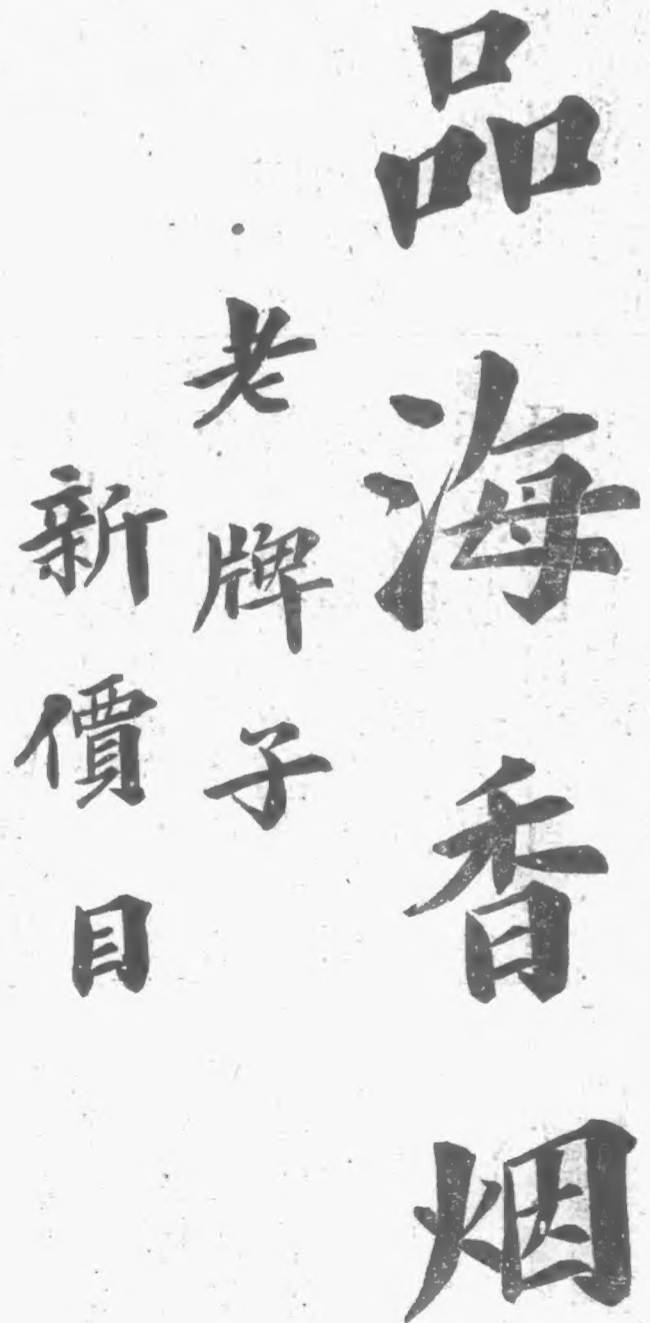 品海香烟
老牌子
新價目